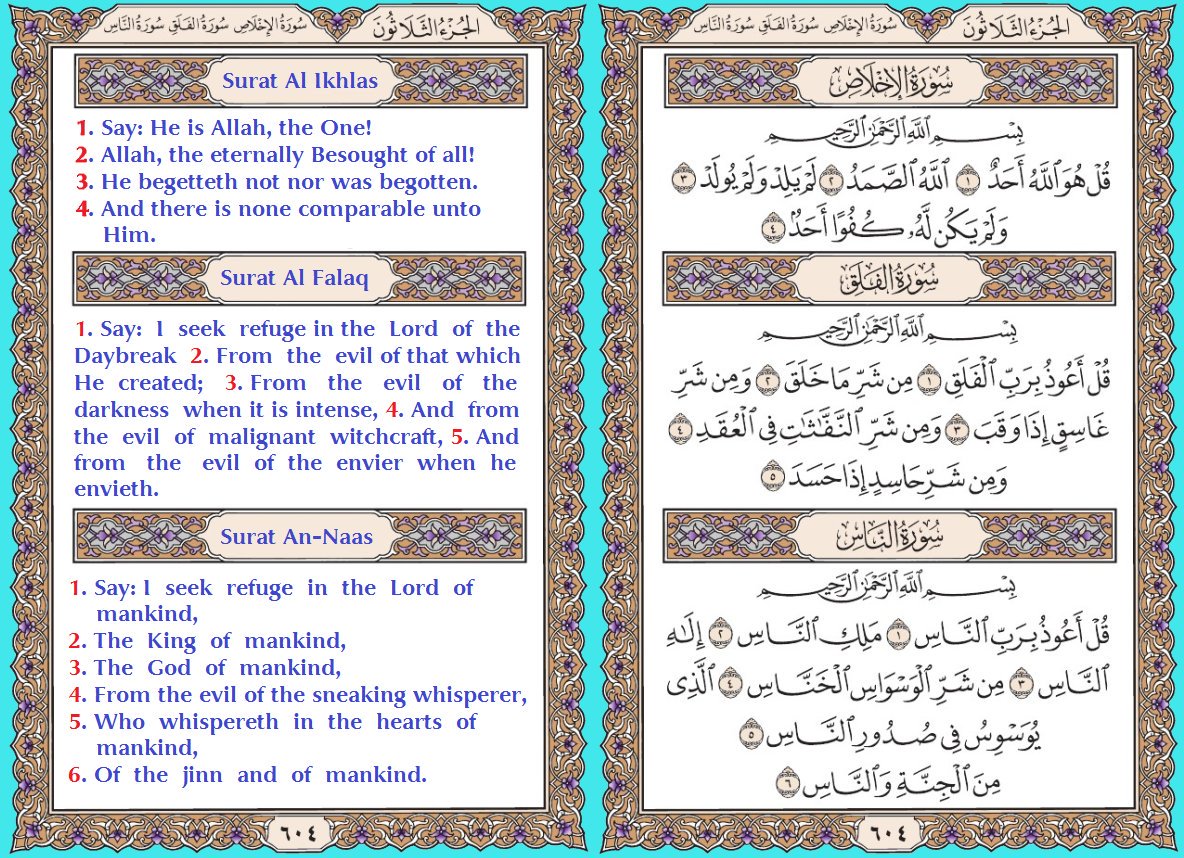 الجزء الثلاثون
سورة الإخلاص سورة الفلق سورة الناس
Surat Al Ikhlas
1. Say: He is Allah, the One!
2. Allah, the eternally Besought of all!
3. He begetteth not nor was begotten.
4. And there is none comparable unto
Him.
Surat Al Falaq
1. Say: I seek refuge in the Lord of the
Daybreak 2. From the evil of that which
He created; 3. From the evil of the
darkness when it is intense, 4. And from
the evil of malignant witchcraft, 5. And
from the evil of the envier when he
envieth.
Surat An-Naas
1. Say: I seek refuge in the Lord of
mankind,
2. The King of mankind,
3. The God of mankind,
4. From the evil of the sneaking whisperer,
5. Who whispereth in the hearts of
mankind,
6. Of the jinn and of mankind.
٦٠٤
الجزء الثلاثون
سورة الإخلاص سورة الفلق سورة الناس
سُورَةُ الإِخْلَاصِ
بِسْمِ ٱللَّهِ ٱلرَّحْمَٰنِ ٱلرَّحِيمِ
قُلْ هُوَ ٱللَّهُ أَحَدٌ ١ ٱللَّهُ ٱلصَّمَدُ ٢ لَمْ يَلِدْ وَلَمْ يُولَدْ ٣
وَلَمْ يَكُن لَّهُۥ كُفُوًا أَحَدٌۢ ٤
سُورَةُ الفَلَقِ
بِسْمِ ٱللَّهِ ٱلرَّحْمَٰنِ ٱلرَّحِيمِ
قُلْ أَعُوذُ بِرَبِّ ٱلْفَلَقِ ١ مِن شَرِّ مَا خَلَقَ ٢ وَمِن شَرِّ
غَاسِقٍ إِذَا وَقَبَ ٣ وَمِن شَرِّ ٱلنَّفَّٰثَٰتِ فِى ٱلْعُقَدِ ٤
وَمِن شَرِّ حَاسِدٍ إِذَا حَسَدَ ٥
سُورَةُ النَّاسِ
بِسْمِ ٱللَّهِ ٱلرَّحْمَٰنِ ٱلرَّحِيمِ
قُلْ أَعُوذُ بِرَبِّ ٱلنَّاسِ ١ مَلِكِ ٱلنَّاسِ ٢ إِلَٰهِ
ٱلنَّاسِ ٣ مِن شَرِّ ٱلْوَسْوَاسِ ٱلْخَنَّاسِ ٤ ٱلَّذِى
يُوَسْوِسُ فِى صُدُورِ ٱلنَّاسِ ٥
مِنَ ٱلْجِنَّةِ وَٱلنَّاسِ ٦
٦٠٤